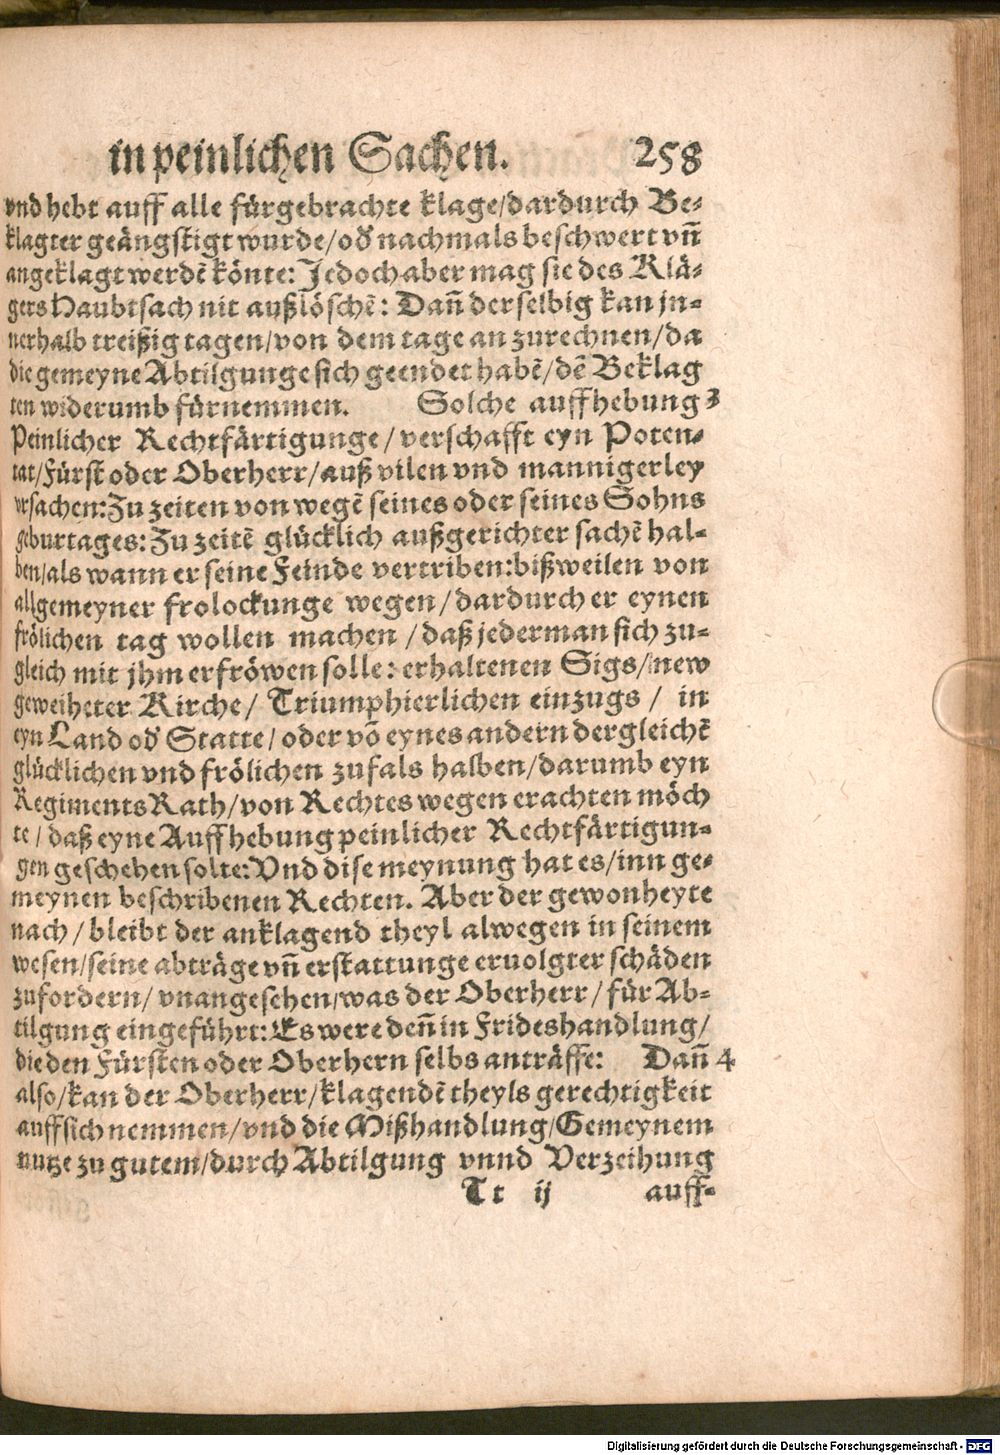 in peinlichen Sachen. 258
vnd hebt auff alle fürgebrachte klage/dardurch Be-
klagter geängstigt wurde/od' nachmals beschwert vn̄
angeklagt werdē könte: Jedoch aber mag sie des Klä-
gers Haubtsach nit außlöschē: Dan̄ derselbig kan jn-
nerhalb treißig tagen/von dem tage an zurechnen/da
die gemeyne Abtilgunge sich geendet habē/dē Beklag
ten widerumb fürnemmen. Solche auffhebung 3
Peinlicher Rechtfärtigunge/verschafft eyn Poten-
tat/Fürst oder Oberherr/auß vilen vnd mannigerley
vrsachen: Zu zeiten von wegē seines oder seines Sohns
geburtages: Zu zeitē glücklich außgerichter sachē hal-
ben/als wann er seine Feinde vertriben: bißweilen von
allgemeyner frolockunge wegen/dardurch er eynen
frölichen tag wollen machen/daß jederman sich zu-
gleich mit jhm erfröwen solle: erhaltenen Sigs/new
geweiheter Kirche/Triumphierlichen einzugs/in
eyn Land od' Statte/oder vō eynes andern dergleichē
glücklichen vnd frölichen zufals halben/darumb eyn
Regiments Rath/von Rechtes wegen erachten möch
te/daß eyne Auffhebung peinlicher Rechtfärtigun-
gen geschehen solte: Vnd dise meynung hat es/inn ge-
meynen beschribenen Rechten. Aber der gewonheyte
nach/bleibt der anklagend theyl alwegen in seinem
wesen/seine abträge vn̄ erstattunge eruolgter schäden
zufordern/vnangesehen/was der Oberherr/für Ab-
tilgung eingeführt: Es were den̄ in Frideshandlung/
die den Fürsten oder Oberhern selbs anträffe: Dan̄ 4
also/kan der Oberherr/klagendē theyls gerechtigkeit
auff sich nemmen/vnd die Mißhandlung/Gemeynem
nutze zu gutem/durch Abtilgung vnnd Verzeihung
Tt ij auff-
Digitalisierung gefördert durch die Deutsche Forschungsgemeinschaft - DFG